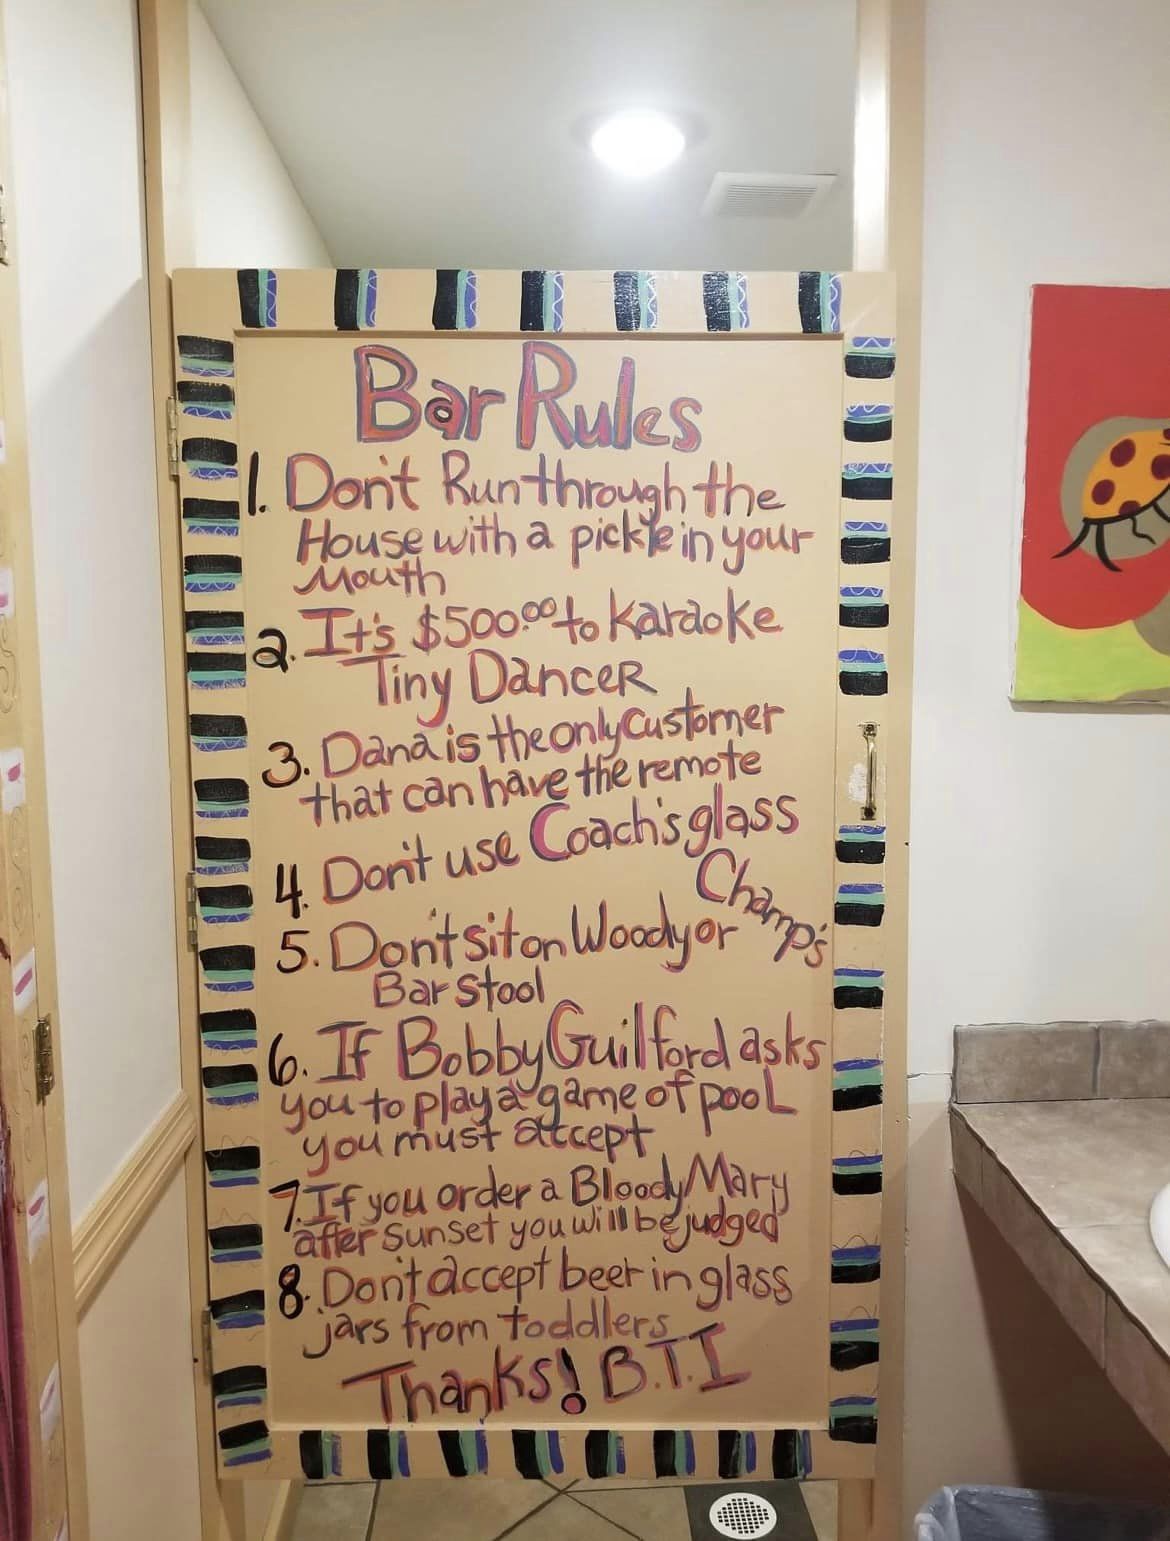 Bar Rules
1. Don't Run through the
House with a pickle in your
Mouth
2. It's $500.00 to karaoke
Tiny Dancer
3. Dana is the only customer
that can have the remote
4. Don't use Coach's glass
5. Don't sit on Woody or Champ's
Bar Stool
6. If Bobby Guilford asks
you to play a game of pool
you must accept
7. If you order a Bloody Mary
after sunset you will be judged
8. Don't accept beer in glass
jars from toddlers
Thanks! B.T.I